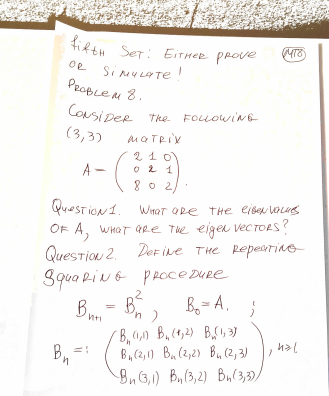 Fifth Set: Either prove
MT8
or simulate!
Problem 8.
Consider the following
(3,3) matrix
A = ( 2 1 0
0 2 1
8 0 2 ).
Question 1. What are the eigenvalues
of A, what are the eigenvectors?
Question 2. Define the repeating
squaring procedure
Bₙ₊₁ = Bₙ², B₀ = A. ;
Bₙ =: ( Bₙ(1,1) Bₙ(1,2) Bₙ(1,3)
Bₙ(2,1) Bₙ(2,2) Bₙ(2,3)
Bₙ(3,1) Bₙ(3,2) Bₙ(3,3) ) , n≥1